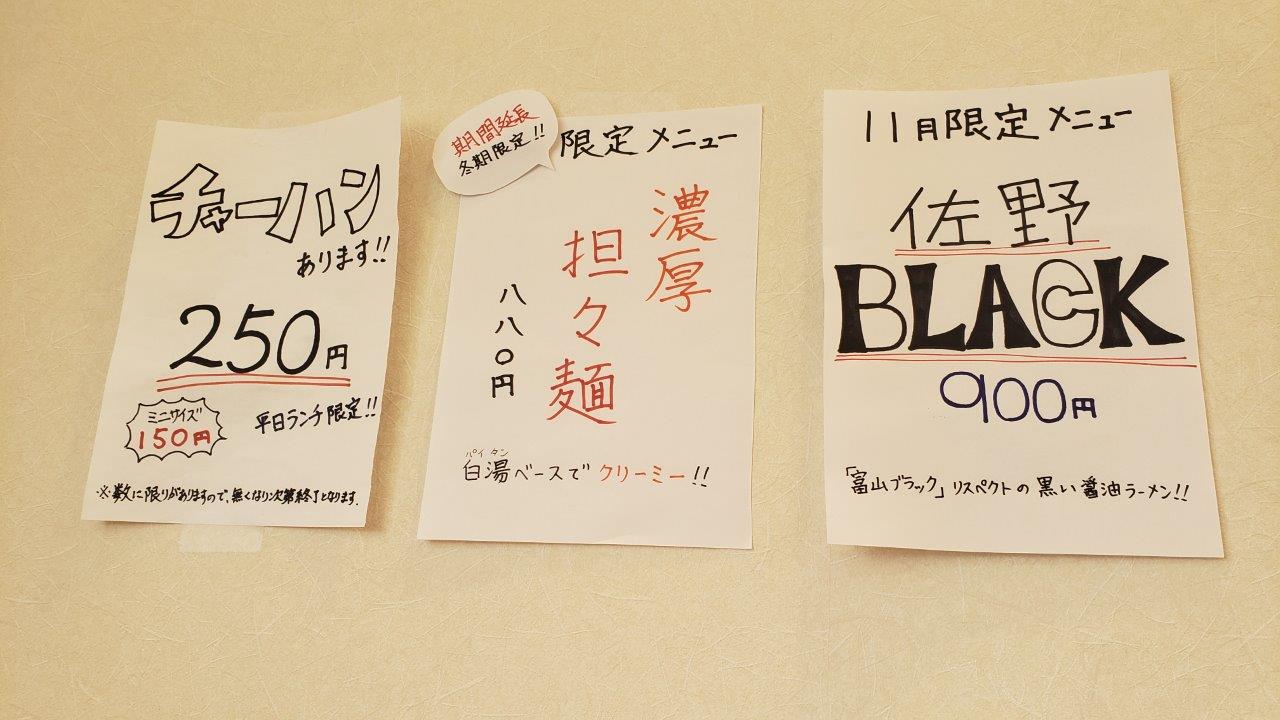 チャーハン
あります!!
250円
ミニサイズ
150円
平日ランチ限定!!
※数に限りがありますので、無くなり次第終了となります。
期間延長
冬期限定!!
限定メニュー
濃厚
担々麺
八八〇円
パイタン
白湯ベースでクリーミー!!
11月限定メニュー
佐野
BLACK
900円
「富山ブラック」リスペクトの黒い醤油ラーメン!!